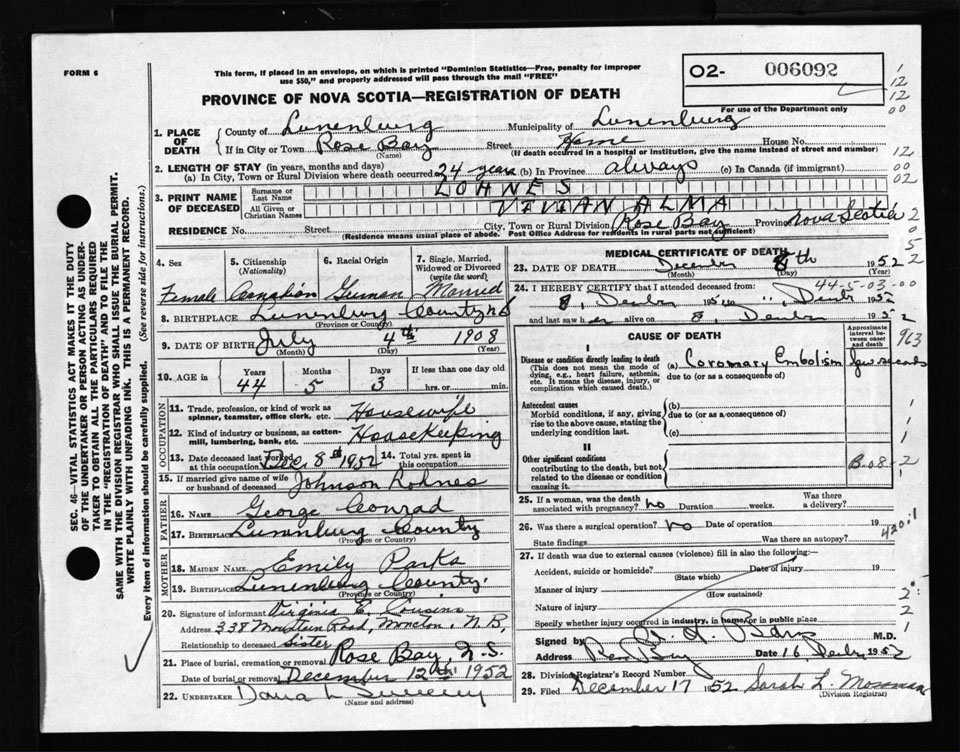 FORM 6
This form, if placed in an envelope, on which is printed "Dominion Statistics—Free, penalty for improper
use $50," and properly addressed will pass through the mail "FREE"
O2- 006092
For use of the Department only
PROVINCE OF NOVA SCOTIA—REGISTRATION OF DEATH
1. PLACE OF DEATH
County of Lunenburg Municipality of Lunenburg
If in City or Town Rose Bay Street Home House No.
(Name) (If death occurred in a hospital or institution, give the name instead of street and number)
2. LENGTH OF STAY (in years, months and days)
(a) In City, Town or Rural Division where death occurred 24 years (b) In Province always (c) In Canada (if immigrant)
3. PRINT NAME OF DECEASED
Surname or Last Name LOHNES
All Given or Christian Names VIVIAN ALMA
RESIDENCE No. Street City, Town or Rural Division Rose Bay Province Nova Scotia
(Residence means usual place of abode. Post Office Address for residents in rural parts not sufficient)
4. Sex
Female
5. Citizenship
(Nationality)
Canadian
6. Racial Origin
German
7. Single, Married, Widowed or Divorced
(write the word)
Married
8. BIRTHPLACE Lunenburg County N S
(Province or County)
9. DATE OF BIRTH July 4th 1908
(Month) (Day) (Year)
10. AGE in Years Months Days If less than one day old
44 5 3 hrs. or min.
OCCUPATION
11. Trade, profession, or kind of work as
spinner, teamster, office clerk, etc. Housewife
12. Kind of industry or business, as cotton-
mill, lumbering, bank, etc. Housekeeping
13. Date deceased last worked
at this occupation Dec. 8th 1952
14. Total yrs. spent in
this occupation
15. If married give name of wife
or husband of deceased Johnson Lohnes
FATHER
16. NAME George Conrad
17. BIRTHPLACE Lunenburg County
(Province or Country)
MOTHER
18. MAIDEN NAME Emily Parks
19. BIRTHPLACE Lunenburg County
(Province or Country)
20. Signature of informant Virginia E. Cousins
Address 338 Mountain Road, Moncton, N.B.
Relationship to deceased Sister
21. Place of burial, cremation or removal Rose Bay N.S.
Date of burial or removal December 12th 1952
22. UNDERTAKER Dana L Sweeny
(Name and address)
MEDICAL CERTIFICATE OF DEATH
23. DATE OF DEATH December 8th 1952
(Month) (Day) (Year)
24. I HEREBY CERTIFY that I attended deceased from:
44-5-03-00
and last saw her alive on 8, 1952
CAUSE OF DEATH
Approximate interval between onset and death
I
Disease or condition directly leading to death
(This does not mean the mode of
dying, e.g., heart failure, asthenia,
etc. It means the disease, injury, or
complication which caused death.)
(a) Coronary Embolism few seconds
due to (or as a consequence of)
Antecedent causes
Morbid conditions, if any, giving
rise to the above cause, stating the
underlying condition last.
(b)
due to (or as a consequence of)
(c)
II
Other significant conditions
contributing to the death, but not
related to the disease or condition
causing it.
B-08-2
25. If a woman, was the death
associated with pregnancy? no Duration weeks. Was there a delivery?
26. Was there a surgical operation? no Date of operation 19
State findings Was there an autopsy?
420.1
27. If death was due to external causes (violence) fill in also the following:—
Accident, suicide or homicide? Date of injury 19
(State which)
Manner of injury
(How sustained)
Nature of injury
Specify whether injury occurred in industry, in home or in public place
Signed by M.D.
Address Rose Bay Date 16 1952
28. Division Registrar's Record Number
29. Filed December 17 1952 Sarah L. Mossman
(Division Registrar)
SEC. 46—VITAL STATISTICS ACT MAKES IT THE DUTY
OF THE UNDERTAKER OR PERSON ACTING AS UNDER-
TAKER TO OBTAIN ALL THE PARTICULARS REQUIRED
IN THE "REGISTRATION OF DEATH" AND TO FILE THE
SAME WITH THE DIVISION REGISTRAR WHO SHALL ISSUE THE BURIAL PERMIT.
WRITE PLAINLY WITH UNFADING INK. THIS IS A PERMANENT RECORD.
Every item of information should be carefully supplied. (See reverse side for instructions.)
1
12
12
00
12
00
02
2
0
5
2
963